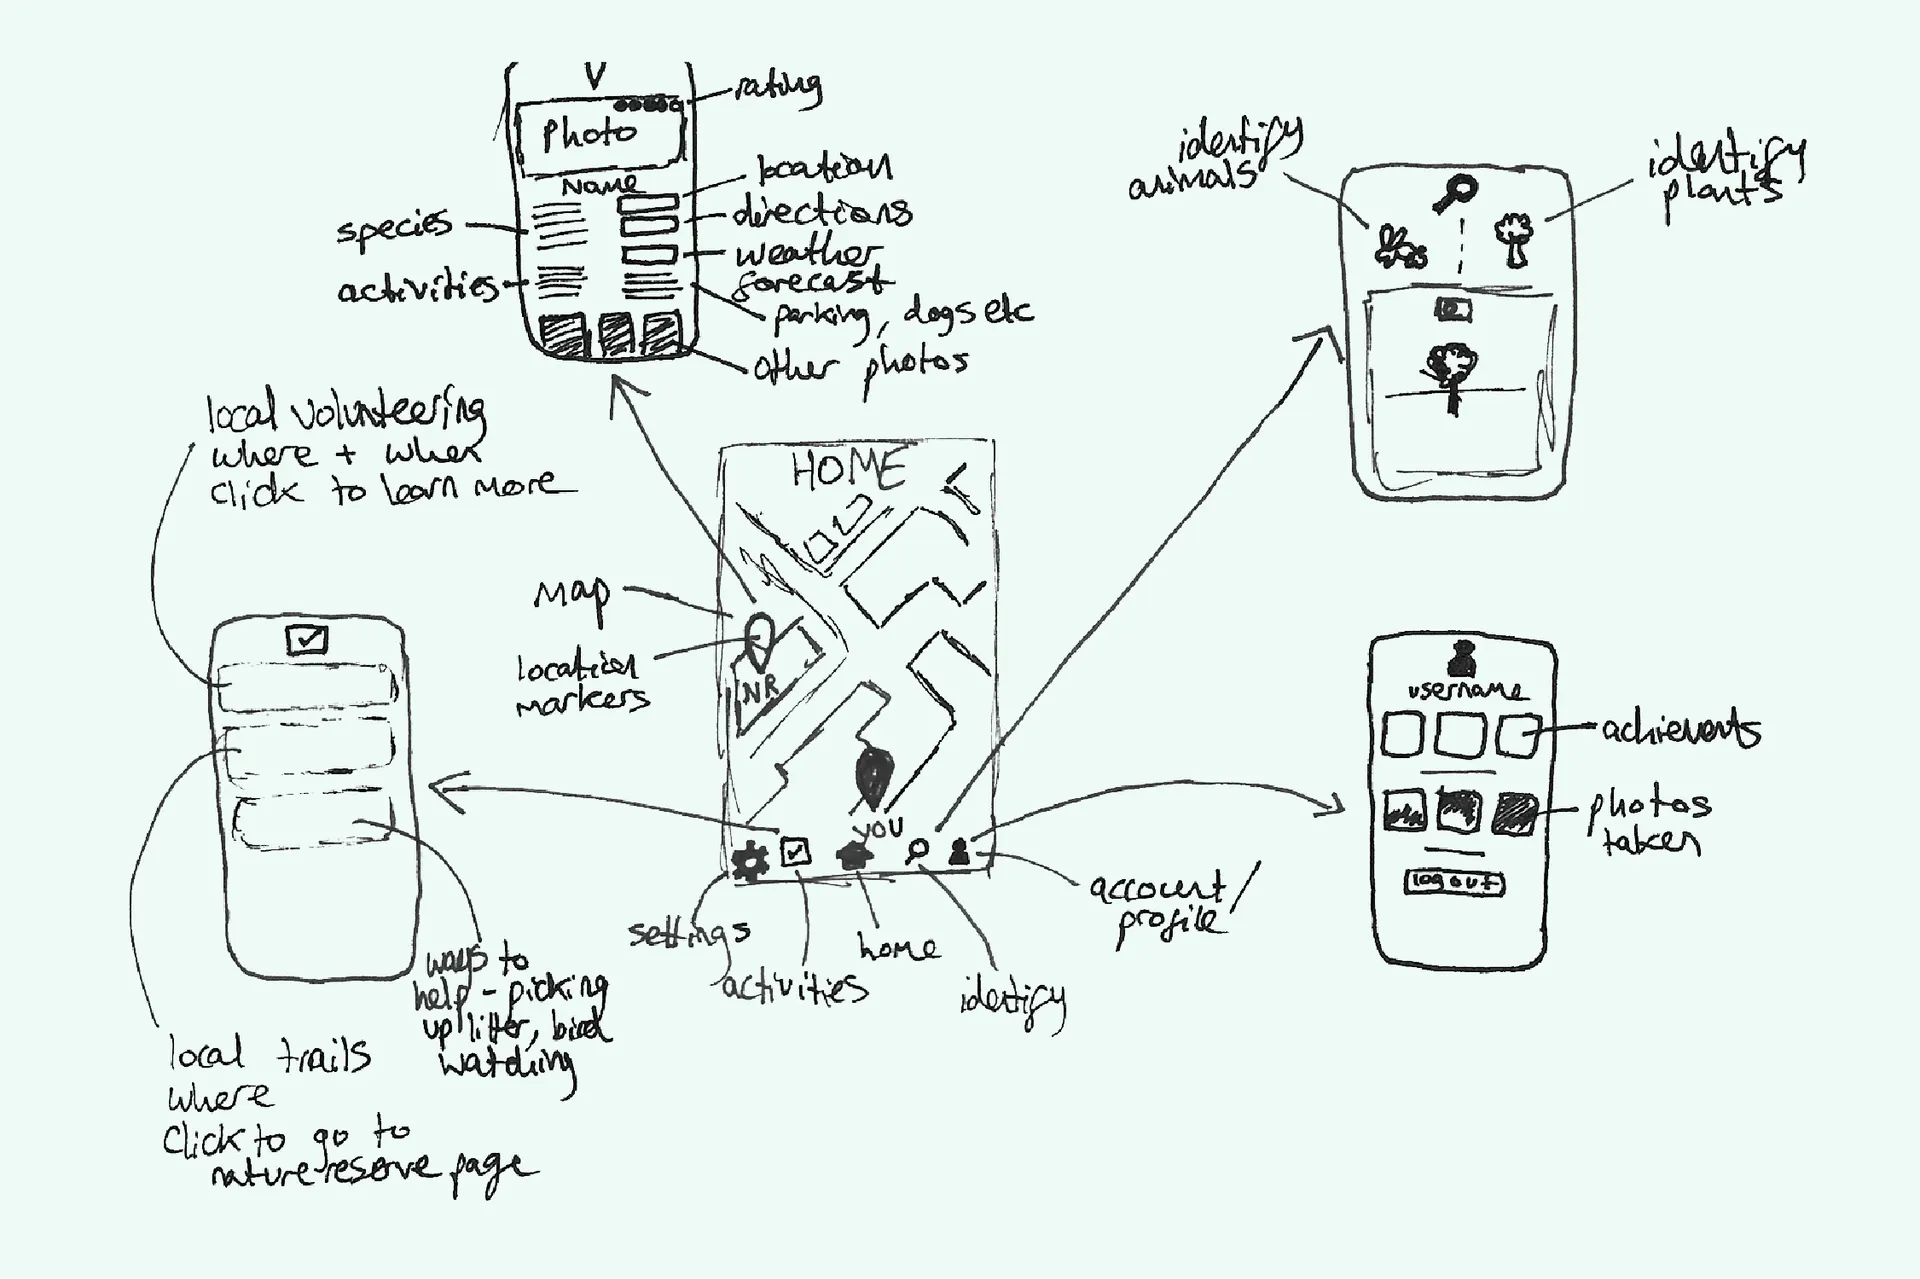 rating
Photo
Name
location
directions
weather
forecast
parking, dogs etc
other photos
species
activities
identify
animals
identify
plants
local volunteering
where + when
click to learn more
HOME
Map
location
markers
NR
YOU
settings
activities
home
identify
account/
profile
ways to
help - picking
up litter, bird
watching
local trails
where
click to go to
nature reserve page
username
achievents
photos
taken
log out